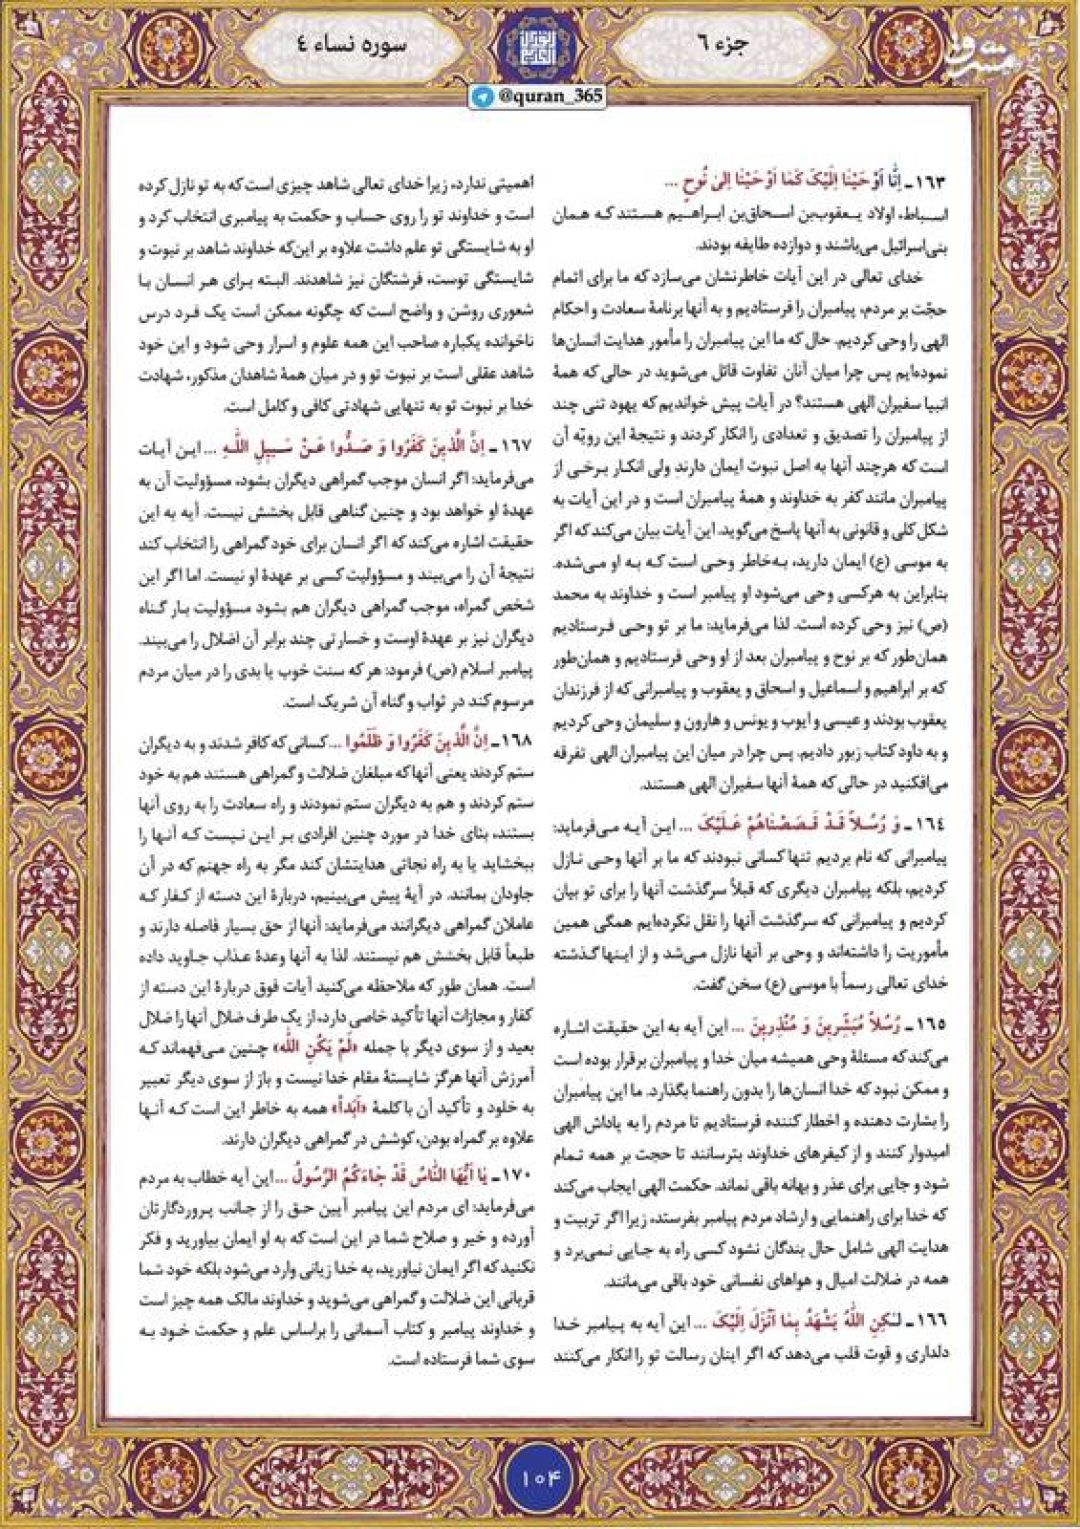 جزء ٦
سوره نساء ٤
@quran_365
١٦٣ـ اِنّٰا اَوْحَیْنٰا اِلَیْکَ کَمٰا اَوْحَیْنٰا اِلیٰ نُوحٍ ...
اسباط، اولاد یعقوب‌بن اسحاق‌بن ابراهیم هستند که همان
بنی‌اسرائیل می‌باشند و دوازده طایفه بودند.
خدای تعالی در این آیات خاطرنشان می‌سازد که ما برای اتمام
حجّت بر مردم، پیامبران را فرستادیم و به آنها برنامهٔ سعادت و احکام
الهی را وحی کردیم. حال که ما این پیامبران را مأمور هدایت انسان‌ها
نموده‌ایم پس چرا میان آنان تفاوت قائل می‌شوید در حالی که همهٔ
انبیا سفیران الهی هستند؟ در آیات پیش خواندیم که یهود تنی چند
از پیامبران را تصدیق و تعدادی را انکار کردند و نتیجهٔ این رویّه آن
است که هرچند آنها به اصل نبوت ایمان دارند ولی انکار برخی از
پیامبران مانند کفر به خداوند و همهٔ پیامبران است و در این آیات به
شکل کلی و قانونی به آنها پاسخ می‌گوید. این آیات بیان می‌کند که اگر
به موسی (ع) ایمان دارید، به‌خاطر وحی است که به او می‌شده.
بنابراین به هرکسی وحی می‌شود او پیامبر است و خداوند به محمد
(ص) نیز وحی کرده است. لذا می‌فرماید: ما بر تو وحی فرستادیم
همان‌طور که بر نوح و پیامبران بعد از او وحی فرستادیم و همان‌طور
که بر ابراهیم و اسماعیل و اسحاق و یعقوب و پیامبرانی که از فرزندان
یعقوب بودند و عیسی و ایوب و یونس و هارون و سلیمان وحی کردیم
و به داود کتاب زبور دادیم. پس چرا در میان این پیامبران الهی تفرقه
می‌افکنید در حالی که همهٔ آنها سفیران الهی هستند.
١٦٤ـ وَ رُسُلاً قَدْ قَصَصْنٰاهُمْ عَلَیْکَ ... این آیه می‌فرماید:
پیامبرانی که نام بردیم تنها کسانی نبودند که ما بر آنها وحی نازل
کردیم، بلکه پیامبران دیگری که قبلاً سرگذشت آنها را برای تو بیان
کردیم و پیامبرانی که سرگذشت آنها را نقل نکرده‌ایم همگی همین
مأموریت را داشته‌اند و وحی بر آنها نازل می‌شد و از اینها گذشته
خدای تعالی رسماً با موسی (ع) سخن گفت.
١٦٥ـ رُسُلاً مُبَشِّرینَ وَ مُنْذِرینَ ... این آیه به این حقیقت اشاره
می‌کند که مسئلهٔ وحی همیشه میان خدا و پیامبران برقرار بوده است
و ممکن نبود که خدا انسان‌ها را بدون راهنما بگذارد. ما این پیامبران
را بشارت دهنده و اخطار کننده فرستادیم تا مردم را به پاداش الهی
امیدوار کنند و از کیفرهای خداوند بترسانند تا حجت بر همه تمام
شود و جایی برای عذر و بهانه باقی نماند. حکمت الهی ایجاب می‌کند
که خدا برای راهنمایی و ارشاد مردم پیامبر بفرستد، زیرا اگر تربیت و
هدایت الهی شامل حال بندگان نشود کسی راه به جایی نمی‌برد و
همه در ضلالت امیال و هواهای نفسانی خود باقی می‌مانند.
١٦٦ـ لٰکِنِ اللّٰهُ یَشْهَدُ بِمٰا اَنْزَلَ اِلَیْکَ ... این آیه به پیامبر خدا
دلداری و قوت قلب می‌دهد که اگر اینان رسالت تو را انکار می‌کنند
اهمیتی ندارد، زیرا خدای تعالی شاهد چیزی است که به تو نازل کرده
است و خداوند تو را روی حساب و حکمت به پیامبری انتخاب کرد و
او به شایستگی تو علم داشت علاوه بر این‌که خداوند شاهد بر نبوت و
شایستگی توست، فرشتگان نیز شاهدند. البته برای هر انسان با
شعوری روشن و واضح است که چگونه ممکن است یک فرد درس
ناخوانده یکباره صاحب این همه علوم و اسرار وحی شود و این خود
شاهد عقلی است بر نبوت تو و در میان همهٔ شاهدان مذکور، شهادت
خدا بر نبوت تو به تنهایی شهادتی کافی و کامل است.
١٦٧ـ اِنَّ الَّذینَ کَفَرُوا وَ صَدُّوا عَنْ سَبیلِ اللّٰهِ ... این آیات
می‌فرماید: اگر انسان موجب گمراهی دیگران بشود، مسؤولیت آن به
عهدهٔ او خواهد بود و چنین گناهی قابل بخشش نیست. آیه به این
حقیقت اشاره می‌کند که اگر انسان برای خود گمراهی را انتخاب کند
نتیجهٔ آن را می‌بیند و مسؤولیت کسی بر عهدهٔ او نیست. اما اگر این
شخص گمراه، موجب گمراهی دیگران هم بشود مسؤولیت بار گناه
دیگران نیز بر عهدهٔ اوست و خسارتی چند برابر آن اضلال را می‌بیند.
پیامبر اسلام (ص) فرمود: هر که سنت خوب یا بدی را در میان مردم
مرسوم کند در ثواب و گناه آن شریک است.
١٦٨ـ اِنَّ الَّذینَ کَفَرُوا وَ ظَلَمُوا ... کسانی که کافر شدند و به دیگران
ستم کردند یعنی آنها که مبلغان ضلالت و گمراهی هستند هم به خود
ستم کردند و هم به دیگران ستم نمودند و راه سعادت را به روی آنها
بستند، بنای خدا در مورد چنین افرادی بر این نیست که آنها را
ببخشاید یا به راه نجاتی هدایتشان کند مگر به راه جهنم که در آن
جاودان بمانند. در آیهٔ پیش می‌بینیم، دربارهٔ این دسته از کفار که
عاملان گمراهی دیگرانند می‌فرماید: آنها از حق بسیار فاصله دارند و
طبعاً قابل بخشش هم نیستند. لذا به آنها وعدهٔ عذاب جاوید داده
است. همان طور که ملاحظه می‌کنید آیات فوق دربارهٔ این دسته از
کفار و مجازات آنها تأکید خاصی دارد، از یک طرف ضلال آنها را ضلال
بعید و از سوی دیگر با جمله «لَمْ یَکُنِ اللّٰه» چنین می‌فهماند که
آمرزش آنها هرگز شایستهٔ مقام خدا نیست و باز از سوی دیگر تعبیر
به خلود و تأکید آن با کلمهٔ «اَبَداً» همه به خاطر این است که آنها
علاوه بر گمراه بودن، کوشش در گمراهی دیگران دارند.
١٧٠ـ یٰا اَیُّهَا النّٰاسُ قَدْ جٰاءَکُمُ الرَّسُولُ ... این آیه خطاب به مردم
می‌فرماید: ای مردم این پیامبر آیین حق را از جانب پروردگارتان
آورده و خیر و صلاح شما در این است که به او ایمان بیاورید و فکر
نکنید که اگر ایمان نیاورید، به خدا زیانی وارد می‌شود بلکه خود شما
قربانی این ضلالت و گمراهی می‌شوید و خداوند مالک همه چیز است
و خداوند پیامبر و کتاب آسمانی را براساس علم و حکمت خود به
سوی شما فرستاده است.
١٠٤